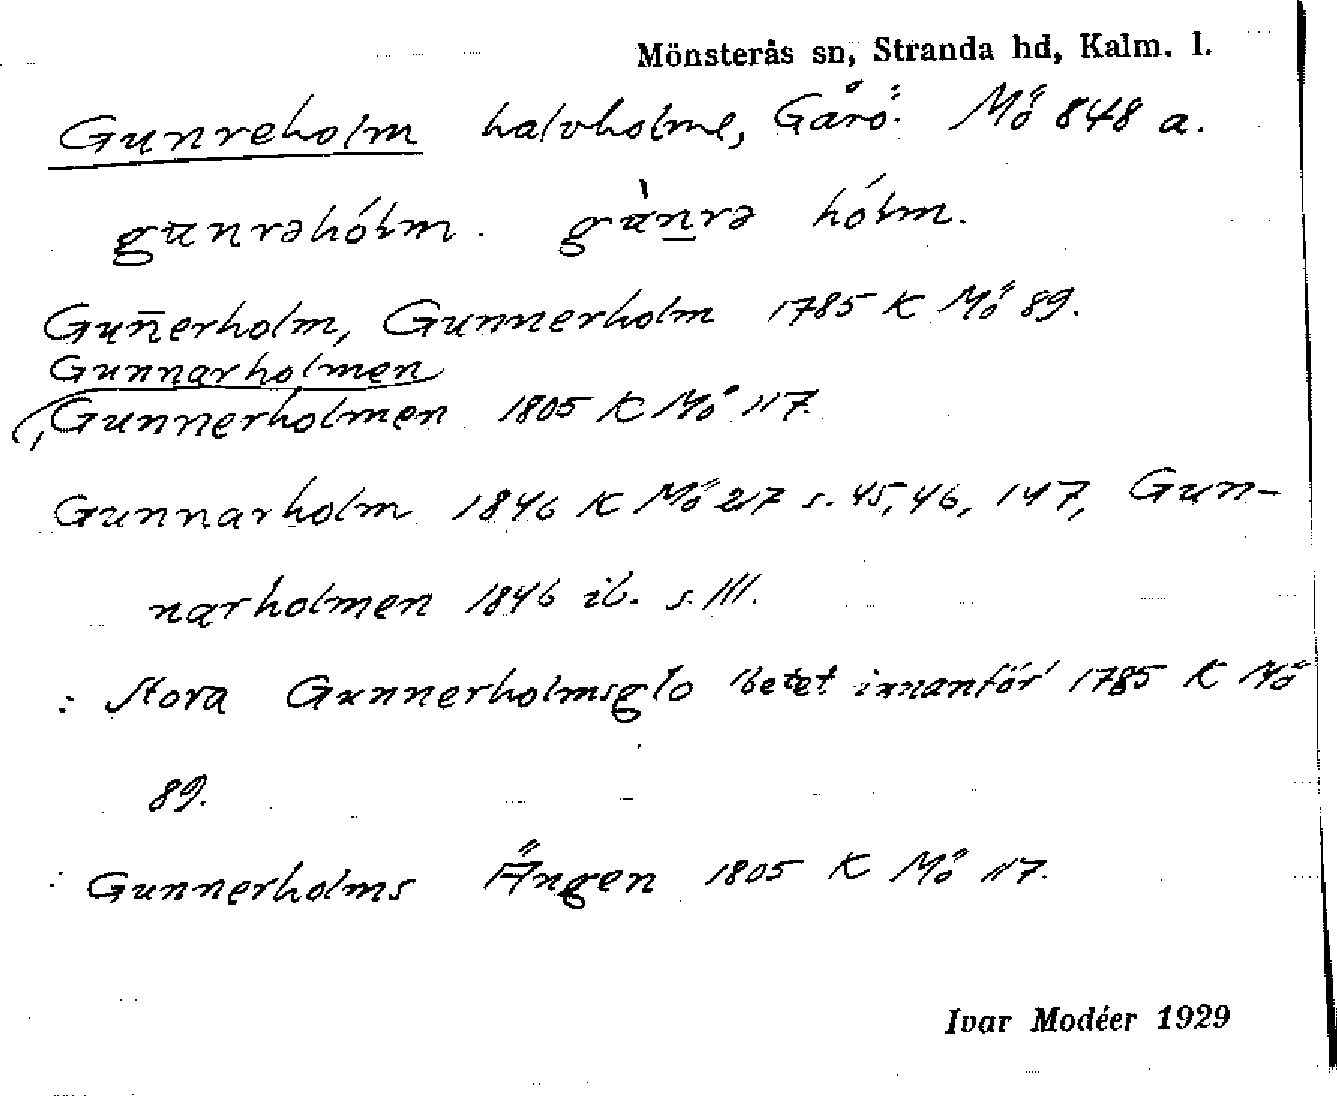 Mönsterås sn, Stranda hd, Kalm. l.
Gunreholm halvholme, Gårö. Mö 848 a.
gunrəhólm. gùnrə hólm.
Gun̄erholm, Gunnerholm 1785 K Mö 89.
Gunnarholmen
Gunnerholmen 1805 K Mö 117.
Gunnarholm 1846 K Mö 217 s. 45, 46, 147, Gun-
narholmen 1846 ib. s. 111.
: Stora Gunnerholmsglo betet innanför 1785 K Mö
89.
: Gunnerholms Ängen 1805 K Mö 117.
Ivar Modéer 1929